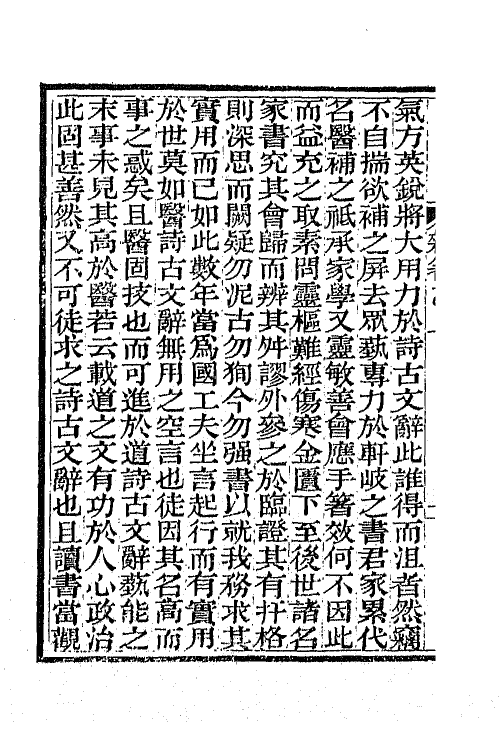 氣方英銳將大用力於詩古文辭此誰得而沮者然竊
不自揣欲補之屏去眾蓺專力於軒岐之書君家累代
名醫補之祇承家學又靈敏善會應手著效何不因此
而益充之取素問靈樞難經傷寒金匱下至後世諸名
家書究其會歸而辨其舛謬外參之於臨證其有扞格
則深思而闕疑勿泥古勿狥今勿强書以就我務求其
實用而已如此數年當為國工夫坐言起行而有實用
於世莫如醫詩古文辭無用之空言也徒因其名高而
事之惑矣且醫固技也而可進於道詩古文辭蓺能之
末事未見其高於醫若云載道之文有功於人心政治
此固甚善然又不可徒求之詩古文辭也且讀書當觀